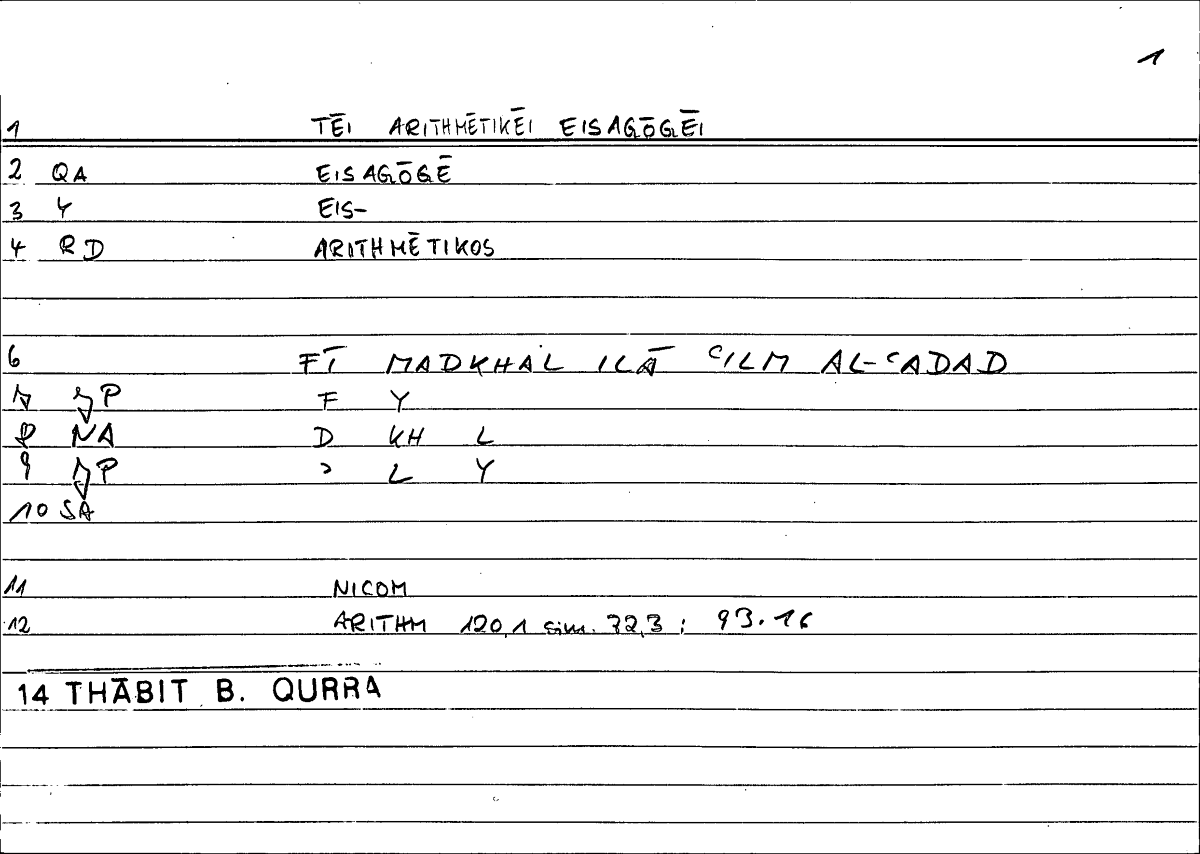 1
1 TĒI ARITHMĒTIKĒI EISAGŌGĒI
2 QA EISAGŌGĒ
3 Y EIS-
4 RD ARITHMĒTIKOS
6 FĪ MADKHAL ILĀ ʿILM AL-ʿADAD
7 P F Y
8 NA D KH L
9 P ʾ L Y
10 SA
11 NICOM
12 ARITHM 120,1 sim. 72,3 ; 93.16
14 THĀBIT B. QURRA